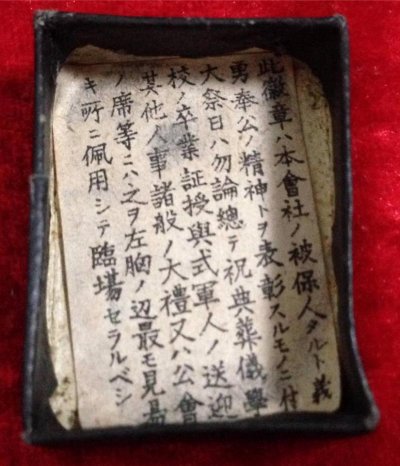 此徽章ハ本會社ノ被保人タルト義
勇奉公ノ精神トヲ表彰スルモノニ付
大祭日ハ勿論總テ祝典葬儀學
校ノ卒業証授與式軍人ノ送迎
其他人事諸般ノ大禮又ハ公會
ノ席等ニハ之ヲ左胸ノ辺最モ見易
キ所ニ佩用シテ臨場セラルベシ